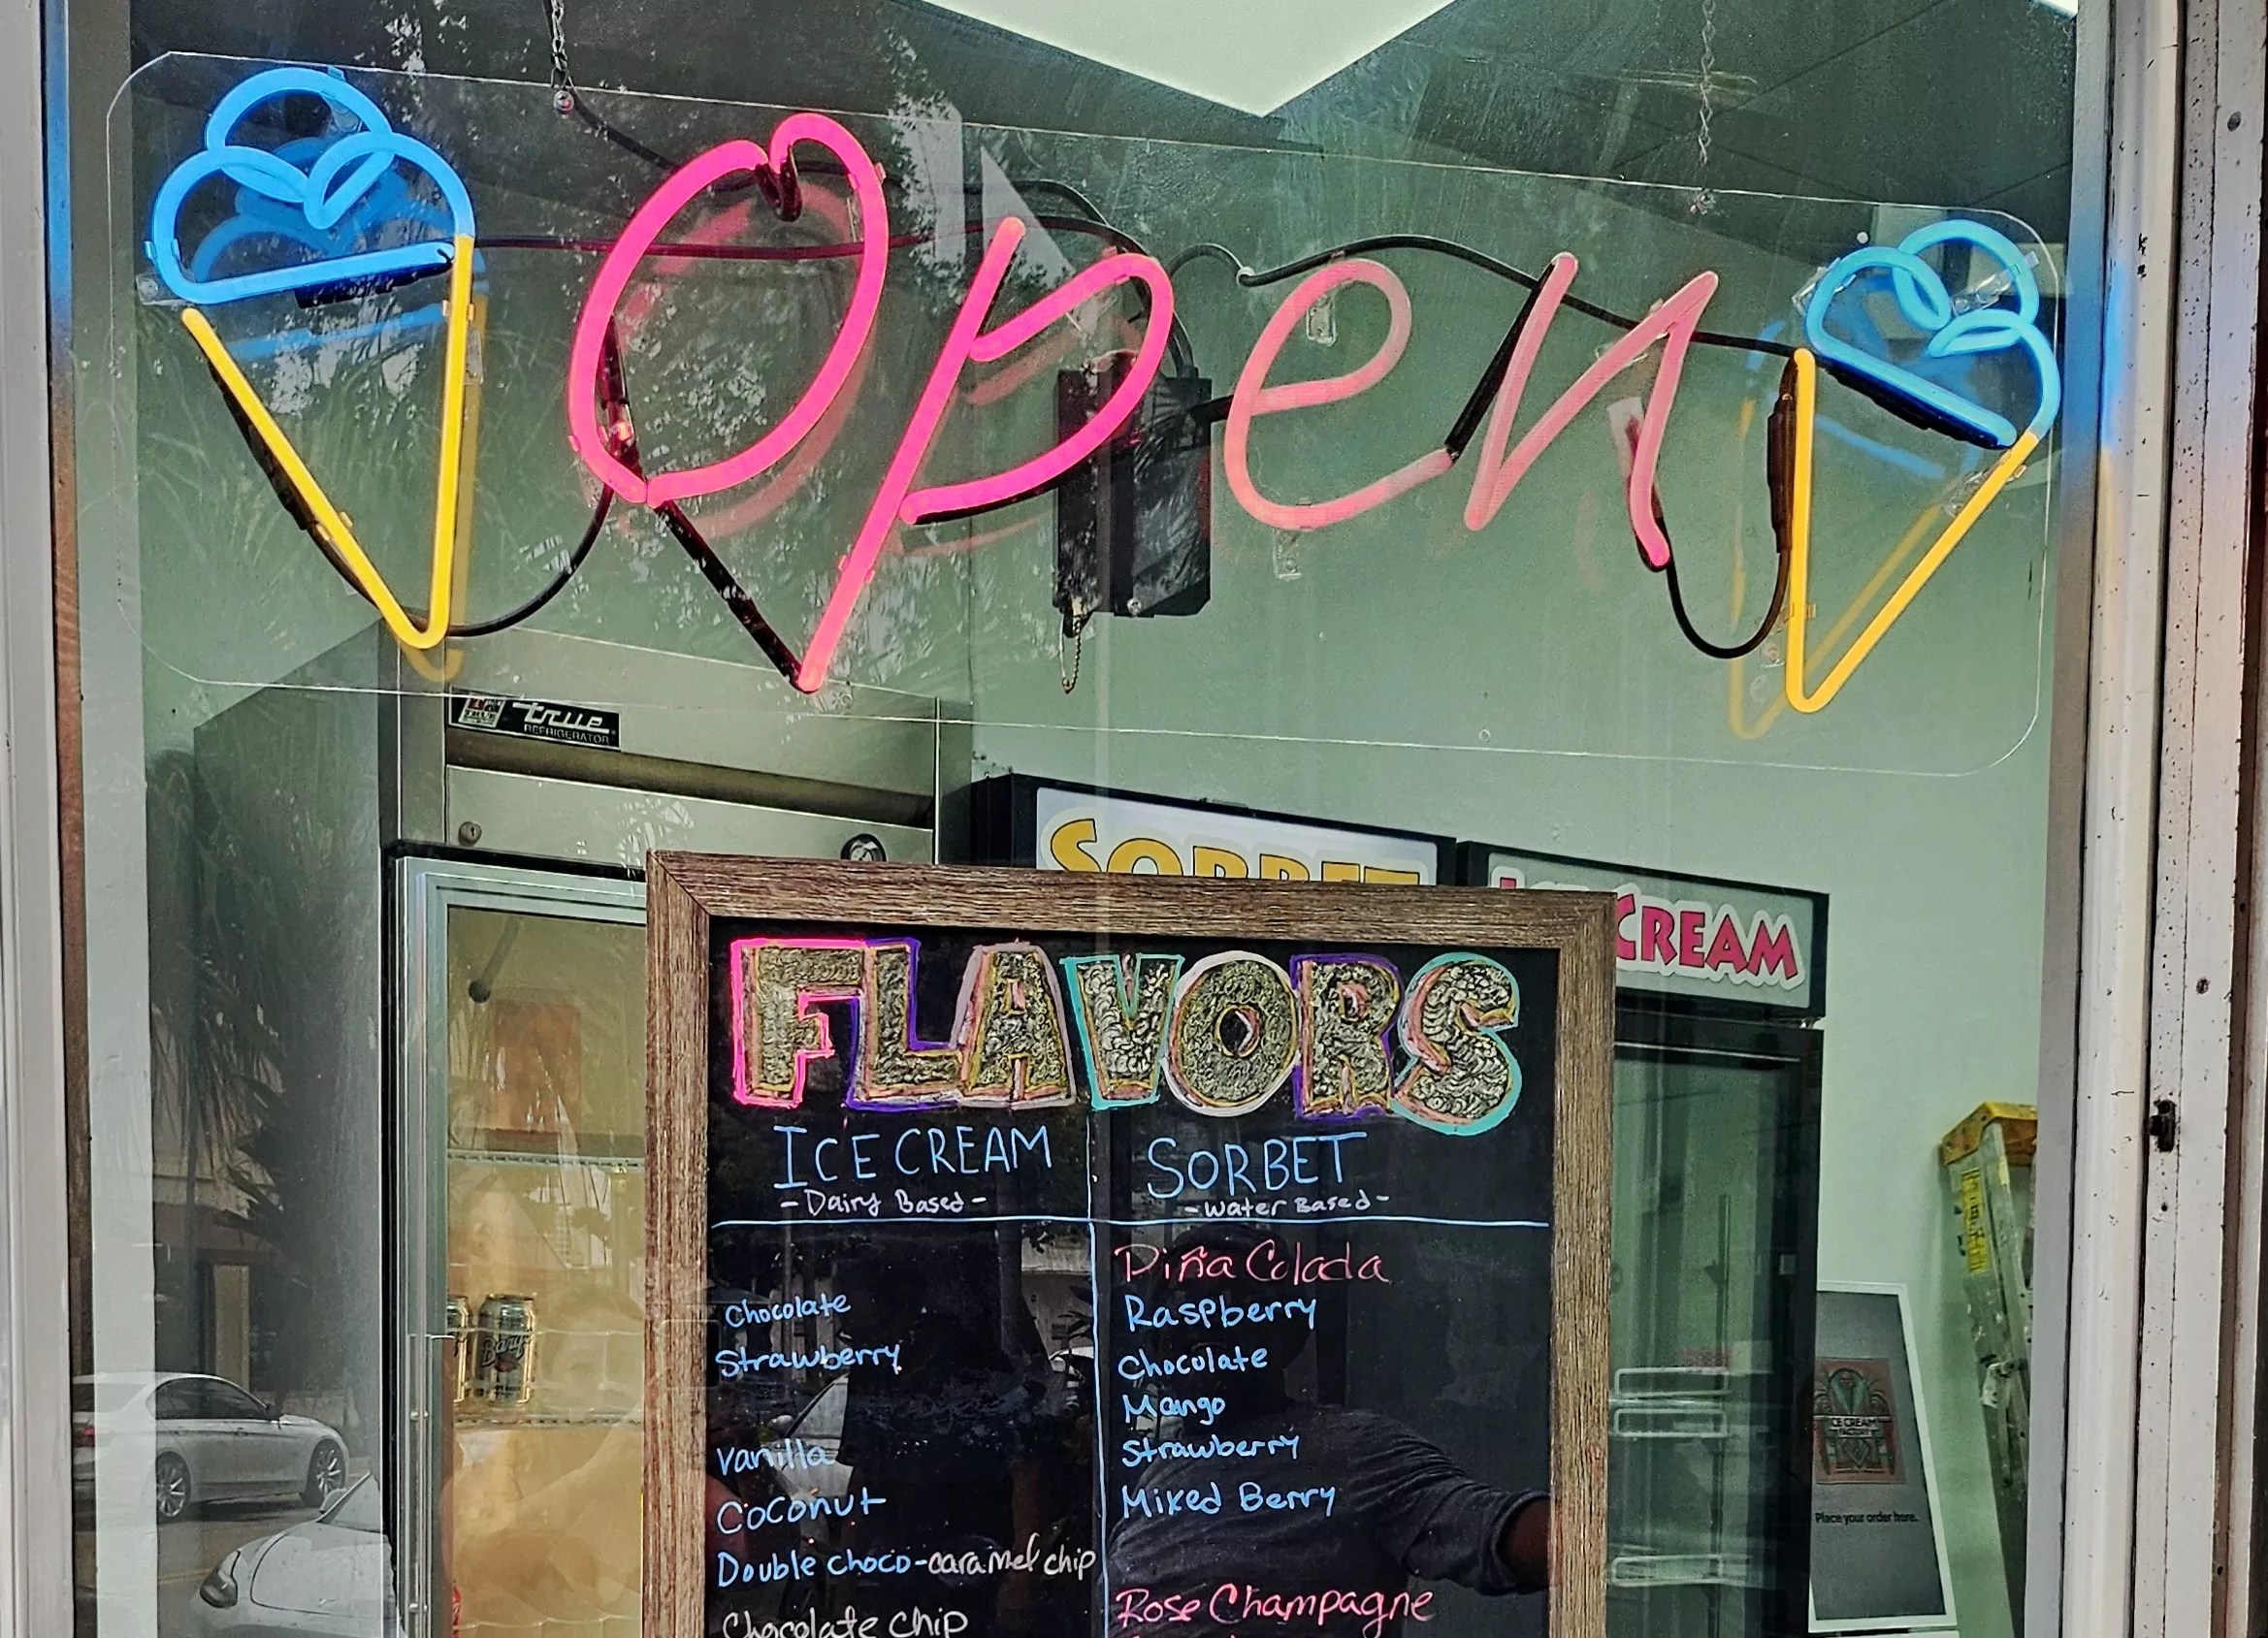 Open
true
REFRIGERATOR
SORBET
ICE CREAM
FLAVORS
ICE CREAM
- Dairy Based -
Chocolate
Strawberry
Vanilla
Coconut
Double choco-caramel chip
Chocolate chip
SORBET
- Water Based -
Piña Colada
Raspberry
Chocolate
Mango
Strawberry
Mixed Berry
Rose Champagne
Barq's
ICE CREAM
FACTORY
Place your order here.